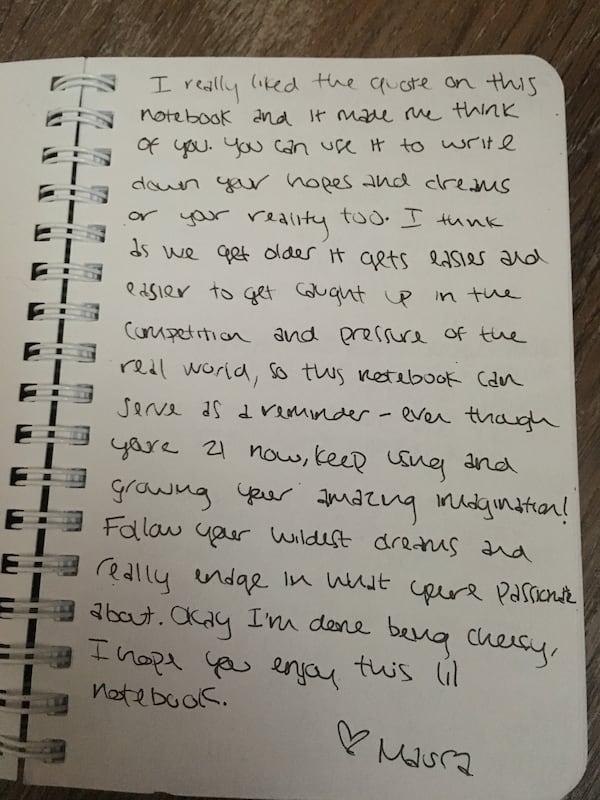 I really liked the quote on this
notebook and it made me think
of you. You can use it to write
down your hopes and dreams
or your reality too. I think
as we get older it gets easier and
easier to get caught up in the
competition and pressure of the
real world, so this notebook can
serve as a reminder - even though
you're 21 now, keep using and
growing your amazing imagination!
Follow your wildest dreams and
really endge in what you're passionate
about. Okay I'm done being cheesy,
I hope you enjoy this lil
notebook.
♡ Maura